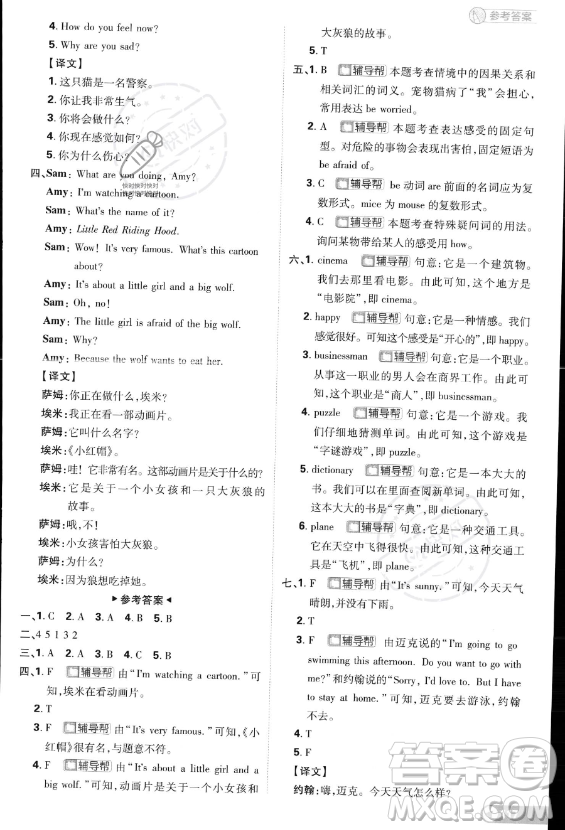 参考答案
4. How do you feel now?
5. Why are you sad?
【译文】
1. 这只猫是一名警察。
2. 你让我非常生气。
3. 你将会做什么?
4. 你现在感觉如何?
5. 你为什么伤心?
四、Sam: What are you doing, Amy?
Amy: I'm watching a cartoon.
Sam: What's the name of it?
Amy: Little Red Riding Hood.
Sam: Wow! It's very famous. What's this cartoon
about?
Amy: It's about a little girl and a big wolf.
Sam: Oh, no!
Amy: The little girl is afraid of the big wolf.
Sam: Why?
Amy: Because the wolf wants to eat her.
【译文】
萨姆:你正在做什么,埃米?
埃米:我正在看一部动画片。
萨姆:它叫什么名字?
埃米:《小红帽》。
萨姆:哇!它非常有名。这部动画片是关于什么的?
埃米:它是关于一个小女孩和一只大灰狼的故事。
萨姆:哦,不!
埃米:小女孩害怕大灰狼。
萨姆:为什么?
埃米:因为狼想吃掉她。
参考答案
一、1. C 2. A 3. A 4. B 5. B
二、4 5 1 3 2
四、1. F 辅导帮 由“I'm watching a cartoon.”可
知,埃米在看动画片。
2. T
3. F 辅导帮 由“It's very famous.”可知,《小
红帽》很有名,与题意不符。
4. F 辅导帮 由“It's about a little girl and a
big wolf.”可知,是关于一个小女孩和一只
大灰狼的故事。
5. T
五、1. B 辅导帮 本题考查情境中的因果关系和
相关词汇的词义。宠物猫病了“我”会担心,
常用表达 be worried。
2. A 辅导帮 本题考查表达感受的固定句
型。对危险的事物会表现害怕,固定短语为
be afraid of。
3. C 辅导帮 be 动词 are 前面的名词应为复
数形式。mice 为 mouse 的复数形式。
4. C 辅导帮 本题考查特殊疑问词的用法。
询问某物带给某人的感受用 how。
六、1. cinema 辅导帮 句意:它是一个建筑物。
我们去那里看电影。由此可知,这个地方是
“电影院”,即 cinema。
2. happy 辅导帮 句意:它是一种情感。我们
感觉很好。可知这个感受是“开心的”,即 happy。
3. businessman 辅导帮 句意:它是一个职业。
从事这一职业的男人会在商界工作。由此可
知,这个职业是“商人”,即 businessman。
4. puzzle 辅导帮 句意:它是一个游戏。我
们仔细地猜测单词。由此可知,这个游戏是
“字谜游戏”,即 puzzle。
5. dictionary 辅导帮 句意:它是一本大大的
书。我们可以在里面查阅新单词。由此可知,
这本大大的书是“字典”,即 dictionary。
6. plane 辅导帮 句意:它是一种交通工具。
它在天空中飞得很快。由此可知,这种交通工
具是“飞机”,即 plane。
七、1. F 辅导帮 由“It's sunny.”可知,今天天气
晴朗,并没有下雨。
2. T
3. F 辅导帮 由迈克说的“I'm going to go
swimming this afternoon. Do you want to
go?”和约翰说的“Sorry, I don't. I have
to stay at home.”可知,迈克要去游泳,约翰
不去。
4. T
5. F
【译文】
约翰:嗨,迈克。今天天气怎么样?
答案圈
MXQE.COM